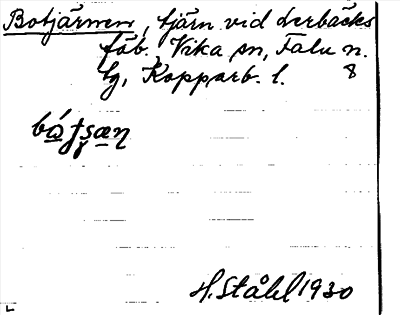 Botjärnen, tjärn vid Lerbäcks
fäb. Vika sn, Falu n.
tg, Kopparb. l. 8
H. Ståhl 1930